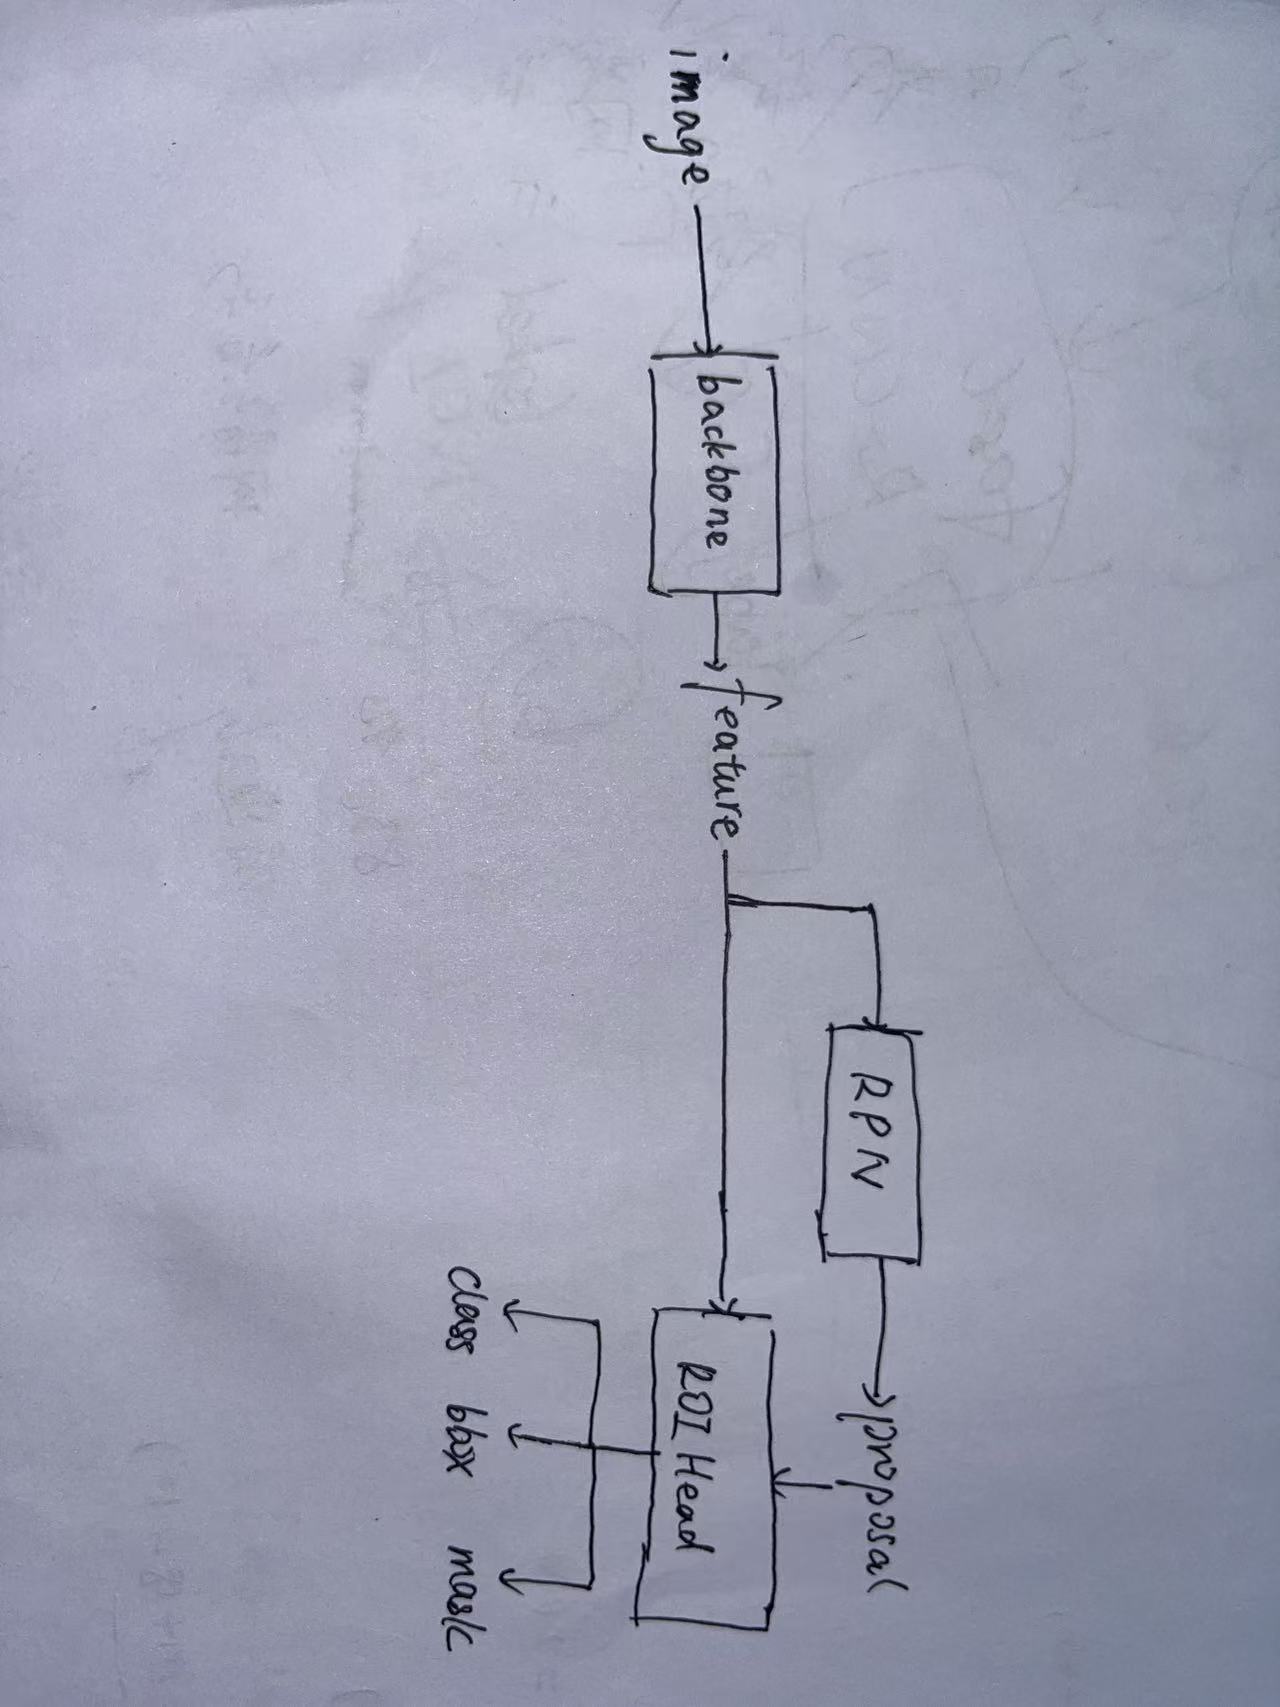 image
backbone
feature
RPN
proposal
ROI Head
class bbox mask